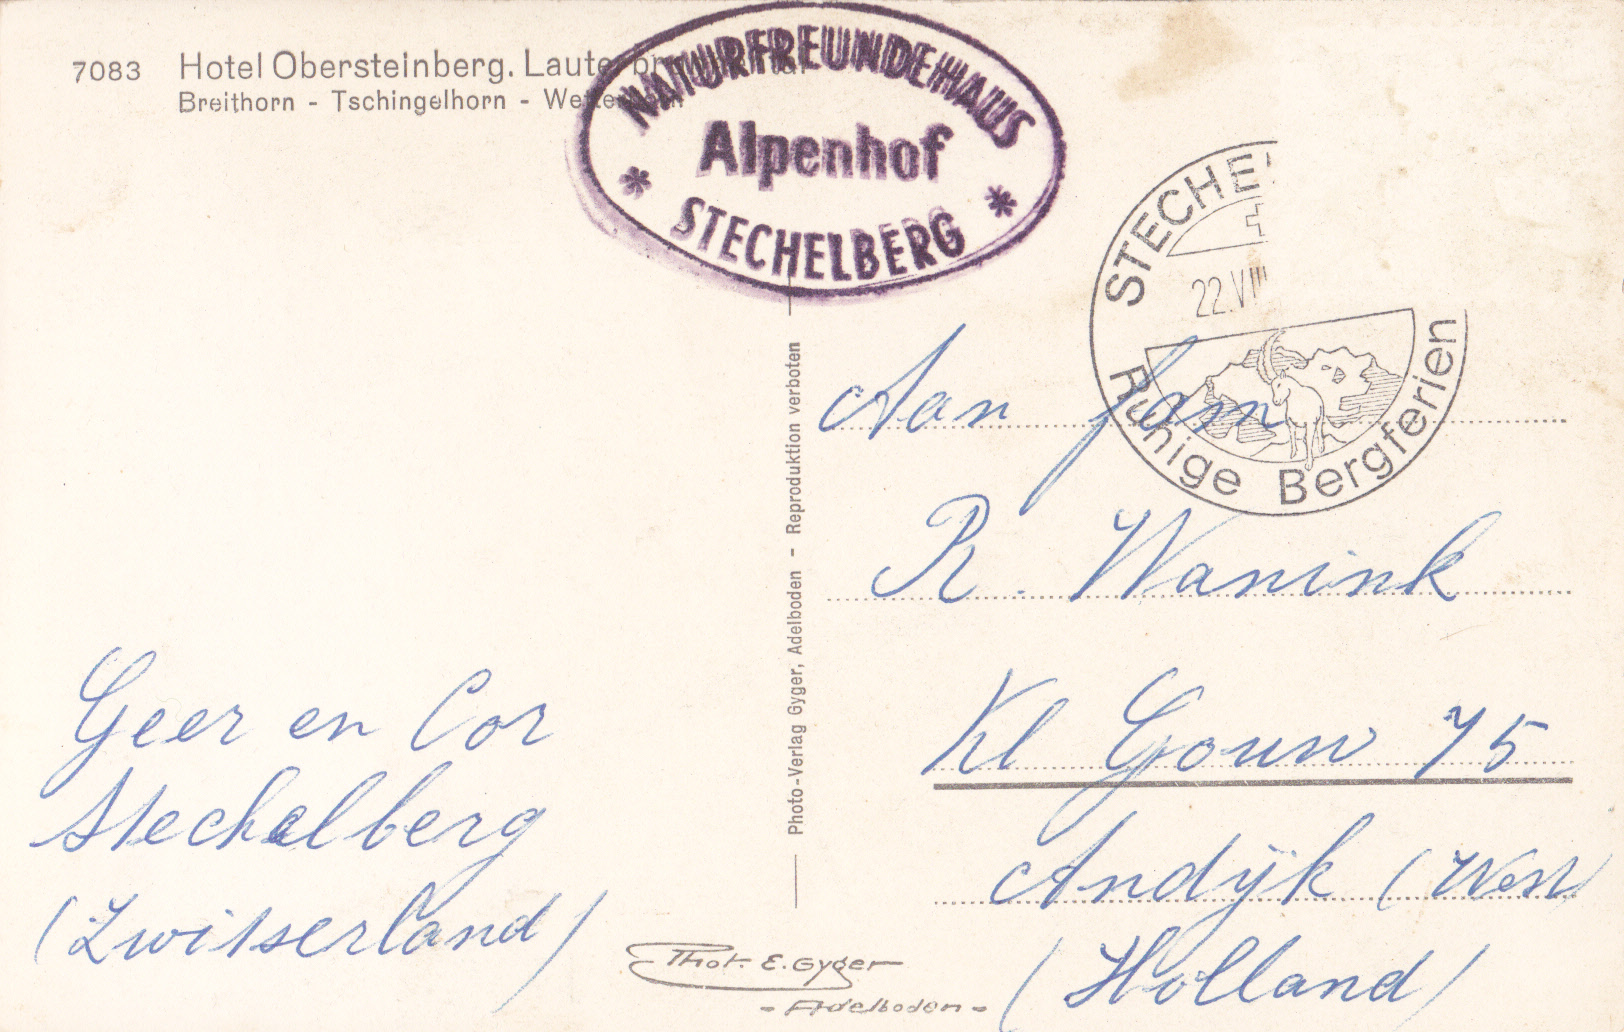 7083 Hotel Obersteinberg. Lauterbrunnental
Breithorn - Tschingelhorn - Wetterhorn
NATURFREUNDEHAUS
Alpenhof
* STECHELBERG *
STECHEL
22.VIII
Ruhige Bergferien
Photo-Verlag Gyger, Adelboden - Reproduktion verboten
Aan fam
R. Wanink
Kl Gouw 75
Andijk (
(Holland)
Geer en Cor
Stechelberg
(Zwitserland)
Phot. E. Gyger
- Adelboden -